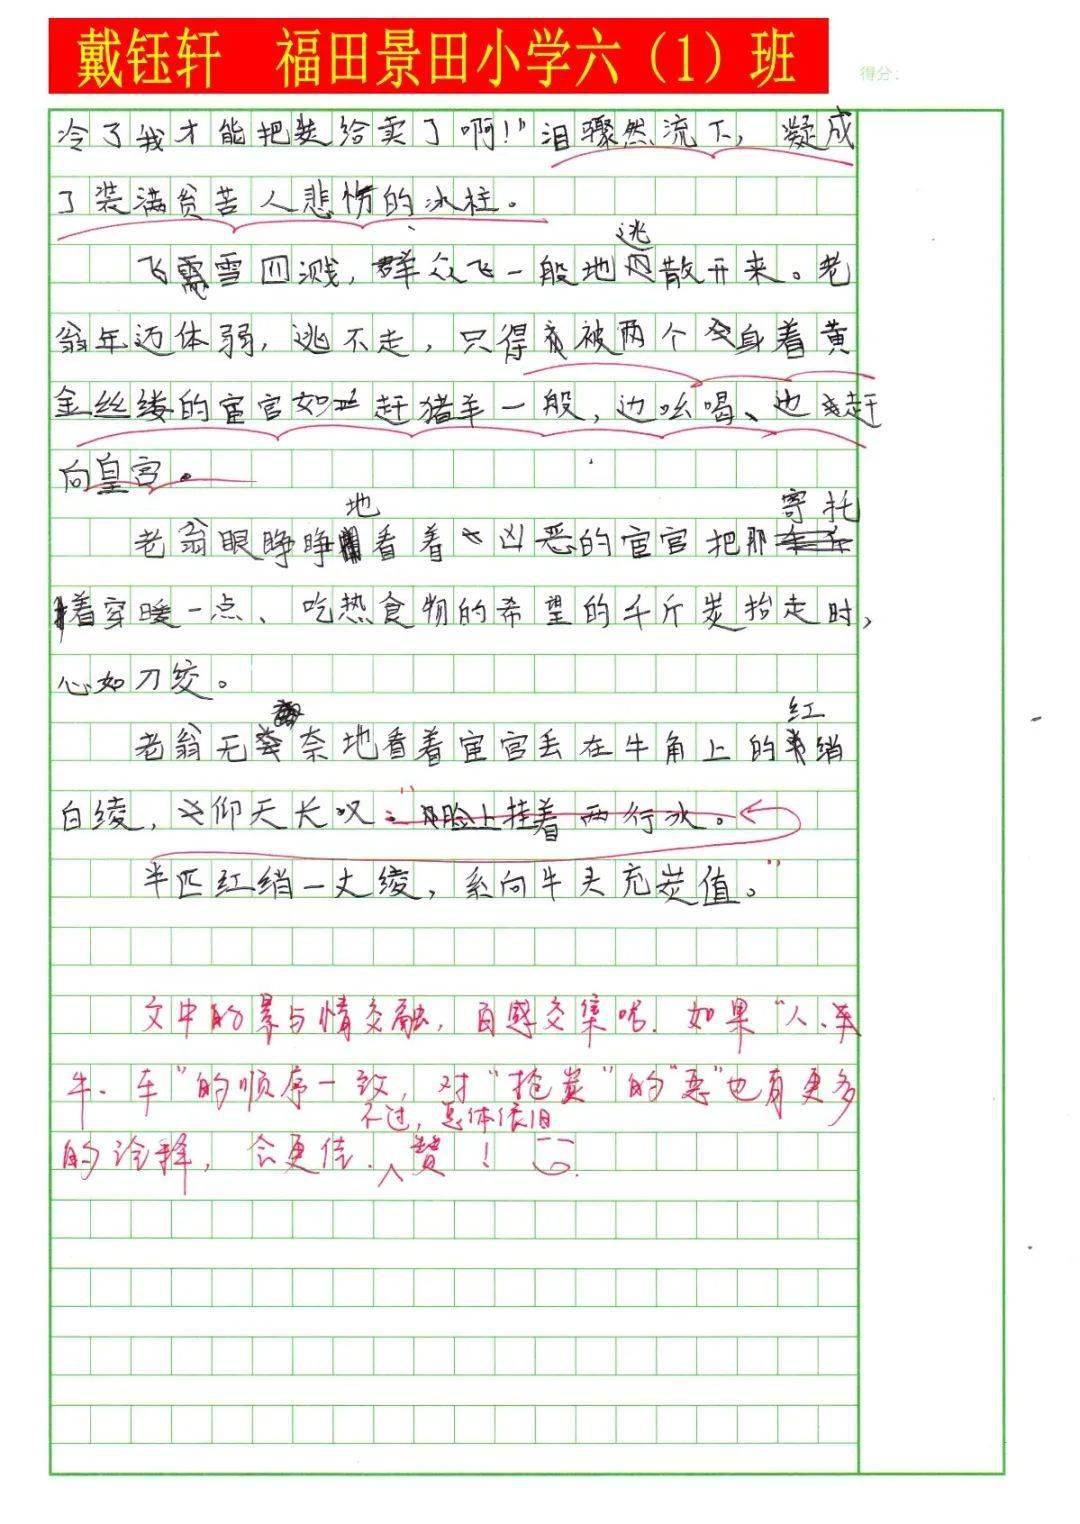 戴钰轩 福田景田小学六（1）班
得分：
冷了我才能把炭给卖了啊！”泪骤然流下，凝成
了装满贫苦人悲伤的冰柱。
飞雪四溅，群众飞一般地逃散开来。老
翁年迈体弱，逃不走，只得被两个身着黄
金丝缕的宦官如赶猪羊一般，边吆喝、边赶
向皇宫。
老翁眼睁睁地看着凶恶的宦官把那寄托
着穿暖一点、吃热食物的希望的千斤炭抬走时，
心如刀绞。
老翁无奈地看着宦官丢在牛角上的红绡
白绫，仰天长叹：“脸上挂着两行冰。
半匹红绡一丈绫，系向牛头充炭值。”
文中的景与情交融，百感交集啊.如果“人、
牛、车”的顺序一致，对“抢炭”的“恶”也有更多
的诠释，会更佳.不过，总体依旧赞！